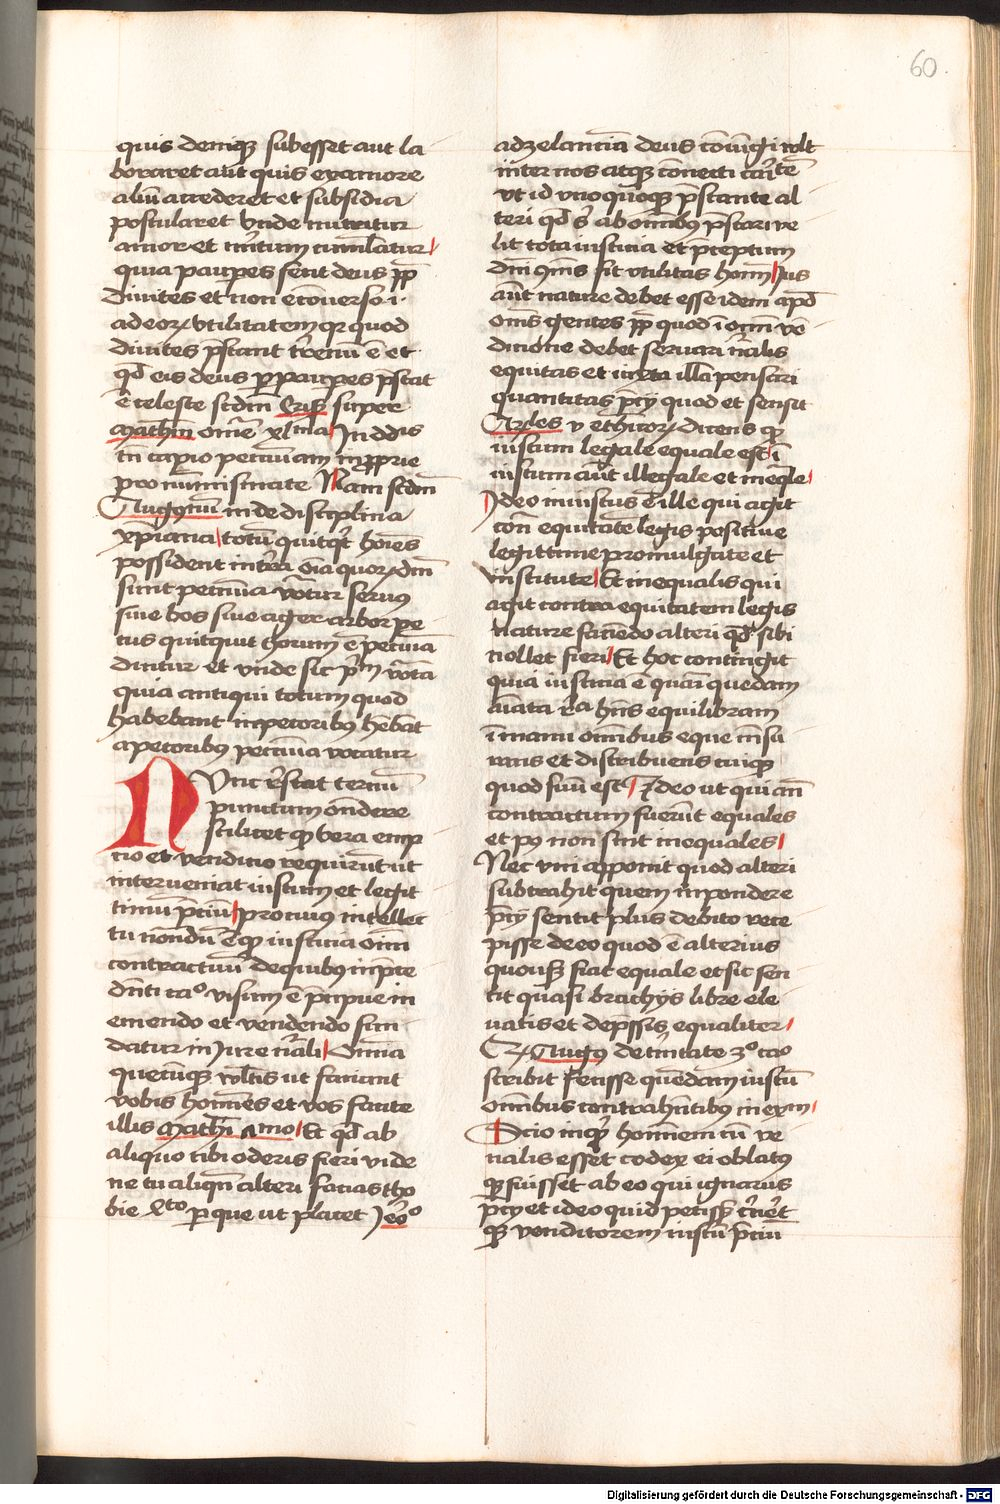 60
quis deniqz subesset aut la
boraret aut quis ex amore
aliū accederet et subsidia
postularet Vnde nutritur
amor et mītum cumlatur
quia paupes fecit deus ppͭ
divites et non ecōverso i
ad eoꝝ utilitatem qꝛ quod
divites pstant trenū ē et
qd eis deus p paupes pstat
ē celeste scdm Cris super
Mathm omē xlma In ddis
tn capio pecuniam inpprie
pro numismate Nam scdm
Augustinū in de disciplina
xpiana totū quitqͥt hoīes
possident in terra oīa quoꝝ dnī
sunt pecunia vocatur servus
sive bos sive ager arbor pe
cus quitquit horum ē pecunia
dicitur et vnde sic pm vocata
quia antiqui totum quod
habebant in pecoribꝰ hebāt
a pecoribꝰ pecunia vocatur
Nunc restat terciū
punctum ondere
scilicet qꝫ vera emp
tio et venditio requirūt ut
interveniat iustum et legit
timū preciū pro cuius intellec
tu nōndū ē qꝫ iusticia oīm
contractuū de quibꝰ in pre
dntī caᵒ visum ē pcipue in
emendo et vendendo fun
datur in Jure nrali Omnia
quecūqz vultis ut faciant
vobis homines et vos facite
illis Mathi Et qd ab
aliquo tibi oderis fieri vide
ne tu aliqn alteri facias tho
bie 4to p que ut placet Jero
ad zelanciā deus cōiungi volt
inter nos atqz conecti caritatē
ut id unoquoqz pstante al
teri qd sͥ ab omībus pstari ve
lit tota iusticia et pceptum
dnī omīs sit utilitas homī Jus
aut nature debet esse idem apd
omīs gentes ppͭ quod ī omī ve
ditione debet servari nralis
equitas et iuxta illā pensari
quantitas pcy quod et sensit
Aristoteles v ethicoꝝ dicens qꝫ
iustum legale equale est ī
iustum aut illegale et ineqle
Ideo iniustus ē ille qui agit
contra equitate legis positive
legittime promulgate et
institute Et inequalis qui
agit contra equitatem legis
nature faciēdo alteri qd sibi
nollet fieri Et hoc contingit
quia iusticia ē quasi quedam
aīata ra hns equilibram
ī manu omībus eque mēsu
rans et distribuens cuiqz
quod suū est Ideo ut qui an
contractum fuerūt equales
et pꝰ non sint inequales
Nec uni apponit quod alteri
subtrahit quem in pondere
pcy sentit plus debito rece
pisse de eo quod ē alterius
quousqz fiat equale et sic sen
tit quasi brachys libre ele
vatis et depssis equaliter
Augꝰ de trinitate 3º caº
scribit fecisse quēdam iustū
omībus contrahētibus in exm
Scio inqt hominem cū ve
nalis esset codex ei oblatꝰ
fuisset ab eo qui ignarus
pcy et ideo quid petisset cerneret
qz venditorem iustū pretiū
Digitalisierung gefördert durch die Deutsche Forschungsgemeinschaft - DFG